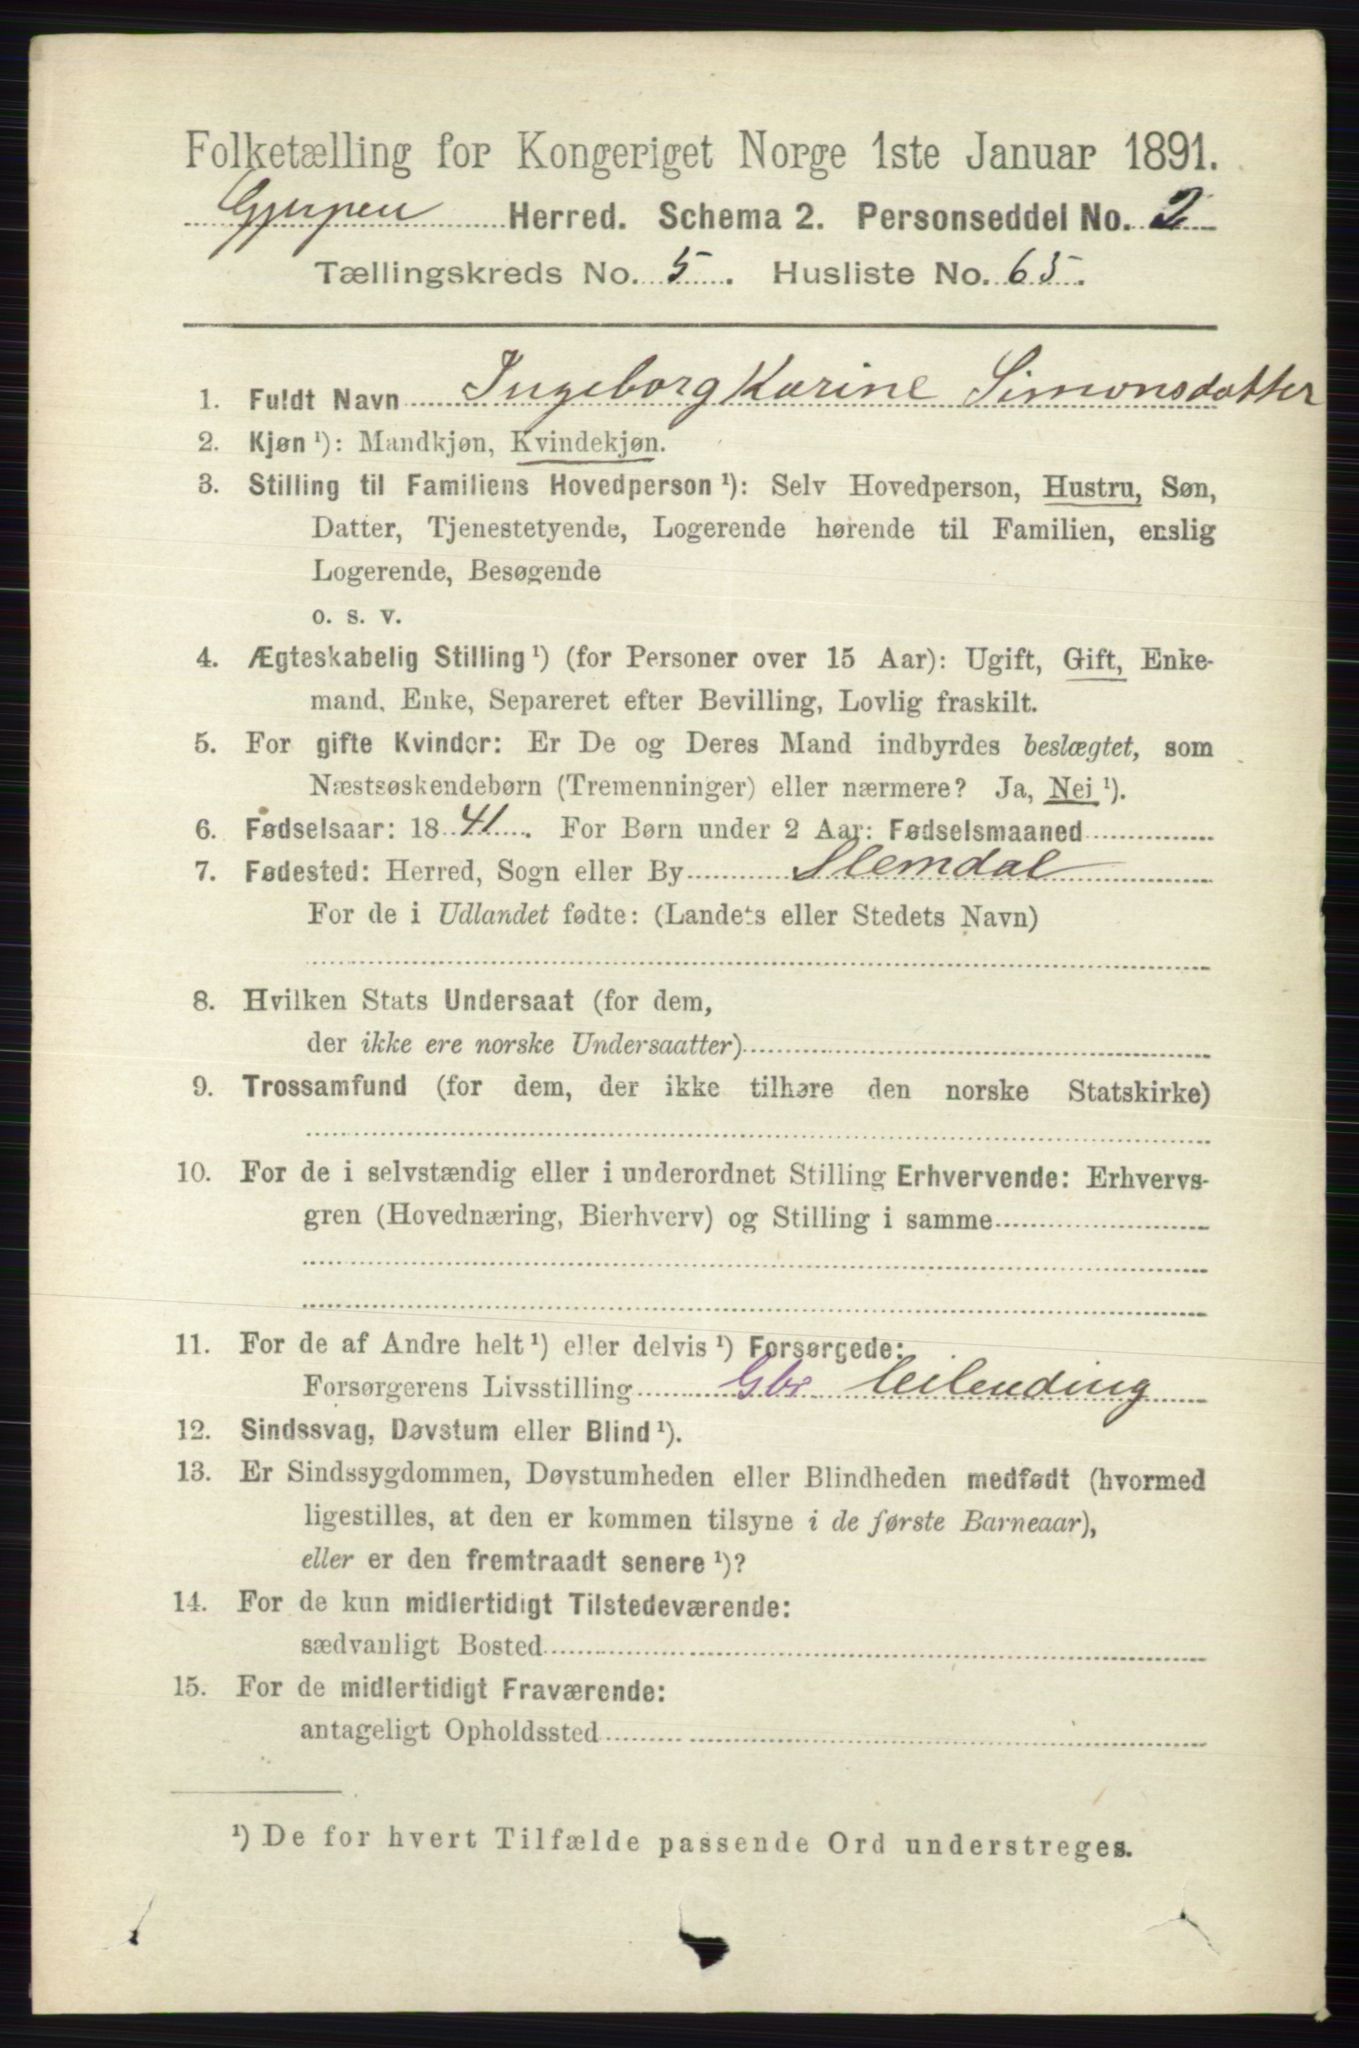 Folketælling for Kongeriget Norge 1ste Januar 1891.
Gjerpen Herred. Schema 2. Personseddel No. 2
Tællingskreds No. 5. Husliste No. 65.
1. Fuldt Navn Ingeborg Karine Simonsdatter
2. Kjøn ¹): Mandkjøn, Kvindekjøn.
3. Stilling til Familiens Hovedperson ¹): Selv Hovedperson, Hustru, Søn,
Datter, Tjenestetyende, Logerende hørende til Familien, enslig
Logerende, Besøgende
o. s. v.
4. Ægteskabelig Stilling ¹) (for Personer over 15 Aar): Ugift, Gift, Enke-
mand, Enke, Separeret efter Bevilling, Lovlig fraskilt.
5. For gifte Kvinder: Er De og Deres Mand indbyrdes beslægtet, som
Næstsøskendebørn (Tremenninger) eller nærmere? Ja, Nei ¹).
6. Fødselsaar: 1841. For Børn under 2 Aar: Fødselsmaaned
7. Fødested: Herred, Sogn eller By Slemdal
For de i Udlandet fødte: (Landets eller Stedets Navn)
8. Hvilken Stats Undersaat (for dem,
der ikke ere norske Undersaatter)
9. Trossamfund (for dem, der ikke tilhøre den norske Statskirke)
10. For de i selvstændig eller i underordnet Stilling Erhvervende: Erhvervs-
gren (Hovednæring, Bierhverv) og Stilling i samme
11. For de af Andre helt ¹) eller delvis ¹) Forsørgede:
Forsørgerens Livsstilling Gbr leilending
12. Sindssvag, Døvstum eller Blind ¹).
13. Er Sindssygdommen, Døvstumheden eller Blindheden medfødt (hvormed
ligestilles, at den er kommen tilsyne i de første Barneaar),
eller er den fremtraadt senere ¹)?
14. For de kun midlertidigt Tilstedeværende:
sædvanligt Bosted
15. For de midlertidigt Fraværende:
antageligt Opholdssted
¹) De for hvert Tilfælde passende Ord understreges.